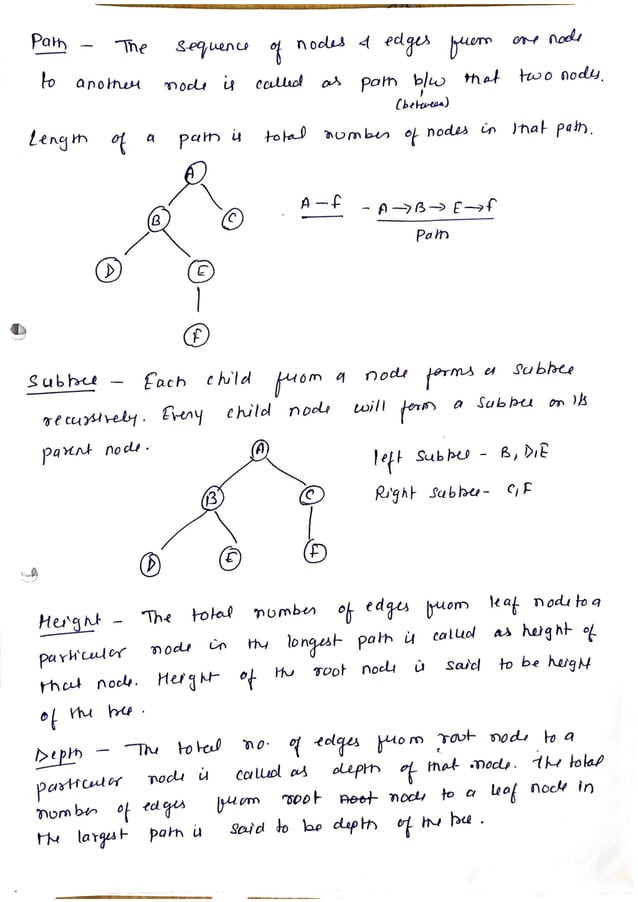 Path - The sequence of nodes & edges from one node
to another node is called as path b/w that two nodes.
(between)
Length of a path is total number of nodes in that path.
A
B
C
A-f - A→B→E→f
Path
D
E
F
Subtree - Each child from a node forms a subtree
recursively. Every child node will form a subtree on its
parent node.
A
left subtree - B, D, E
B
C
Right subtree - C, F
D
E
F
Height - The total number of edges from leaf node to a
particular node in the longest path is called as height of
that node. Height of the root node is said to be height
of the tree.
Depth - The total no. of edges from root node to a
particular node is called as depth of that node. The total
number of edges from root root node to a leaf node in
the largest path is said to be depth of the tree.